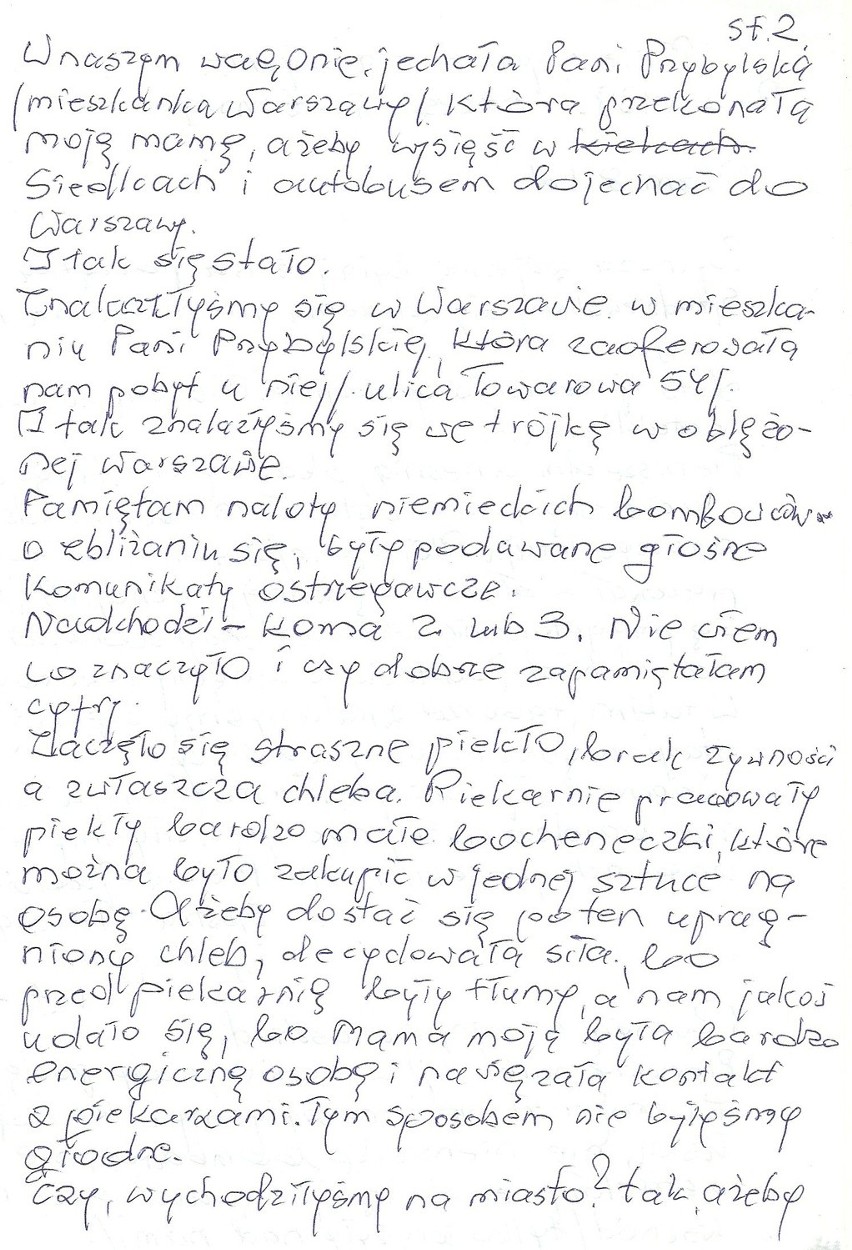 str.2.
W naszym wagonie, jechała Pani Przybylska
/mieszkanka Warszawy/ która przekonała
moją mamę, ażeby wysięść w Kielcach.
Siedlcach i autobusem dojechać do
Warszawy.
I tak się stało.
Znalazłyśmy się w Warszawie w mieszka-
niu Pani Przybylskiej, która zaoferowała
nam pobyt u niej /ulica Towarowa 54/.
I tak znalazłyśmy się we trójkę w oblężo-
nej Warszawie.
Pamiętam naloty niemieckich bombowców
o zbliżaniu się, były podawane głośne
komunikaty ostrzegawcze.
Nadchodzi - koma 2 lub 3. Nie wiem
co znaczyło i czy dobrze zapamiętałam
cyfry.
Zaczęło się straszne piekło, brak żywności
a zwłaszcza chleba. Piekarnie pracowały
piekły bardzo małe bocheneczki, które
można było zakupić w jednej sztuce na
osobę. Ażeby dostać się po ten uprag-
niony chleb, decydowała siła, bo
przed piekarnią były tłumy, a nam jakoś
udało się, bo Mama moja była bardzo
energiczną osobą i nawięzała kontakt
z piekarzami. Tym sposobem nie byłyśmy
głodne.
Czy, wychodziłyśmy na miasto? tak, ażeby